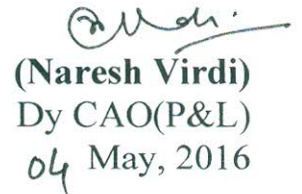 (Naresh Virdi)
Dy CAO(P&L)
04 May, 2016